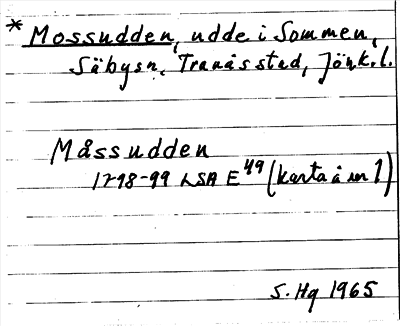 * Mossudden, udde i Sommen,
Säbysn, Tranås stad, Jönk.l.
Måssudden
1798-99 LSA E 49 (karta å nr 1)
S. Hg 1965